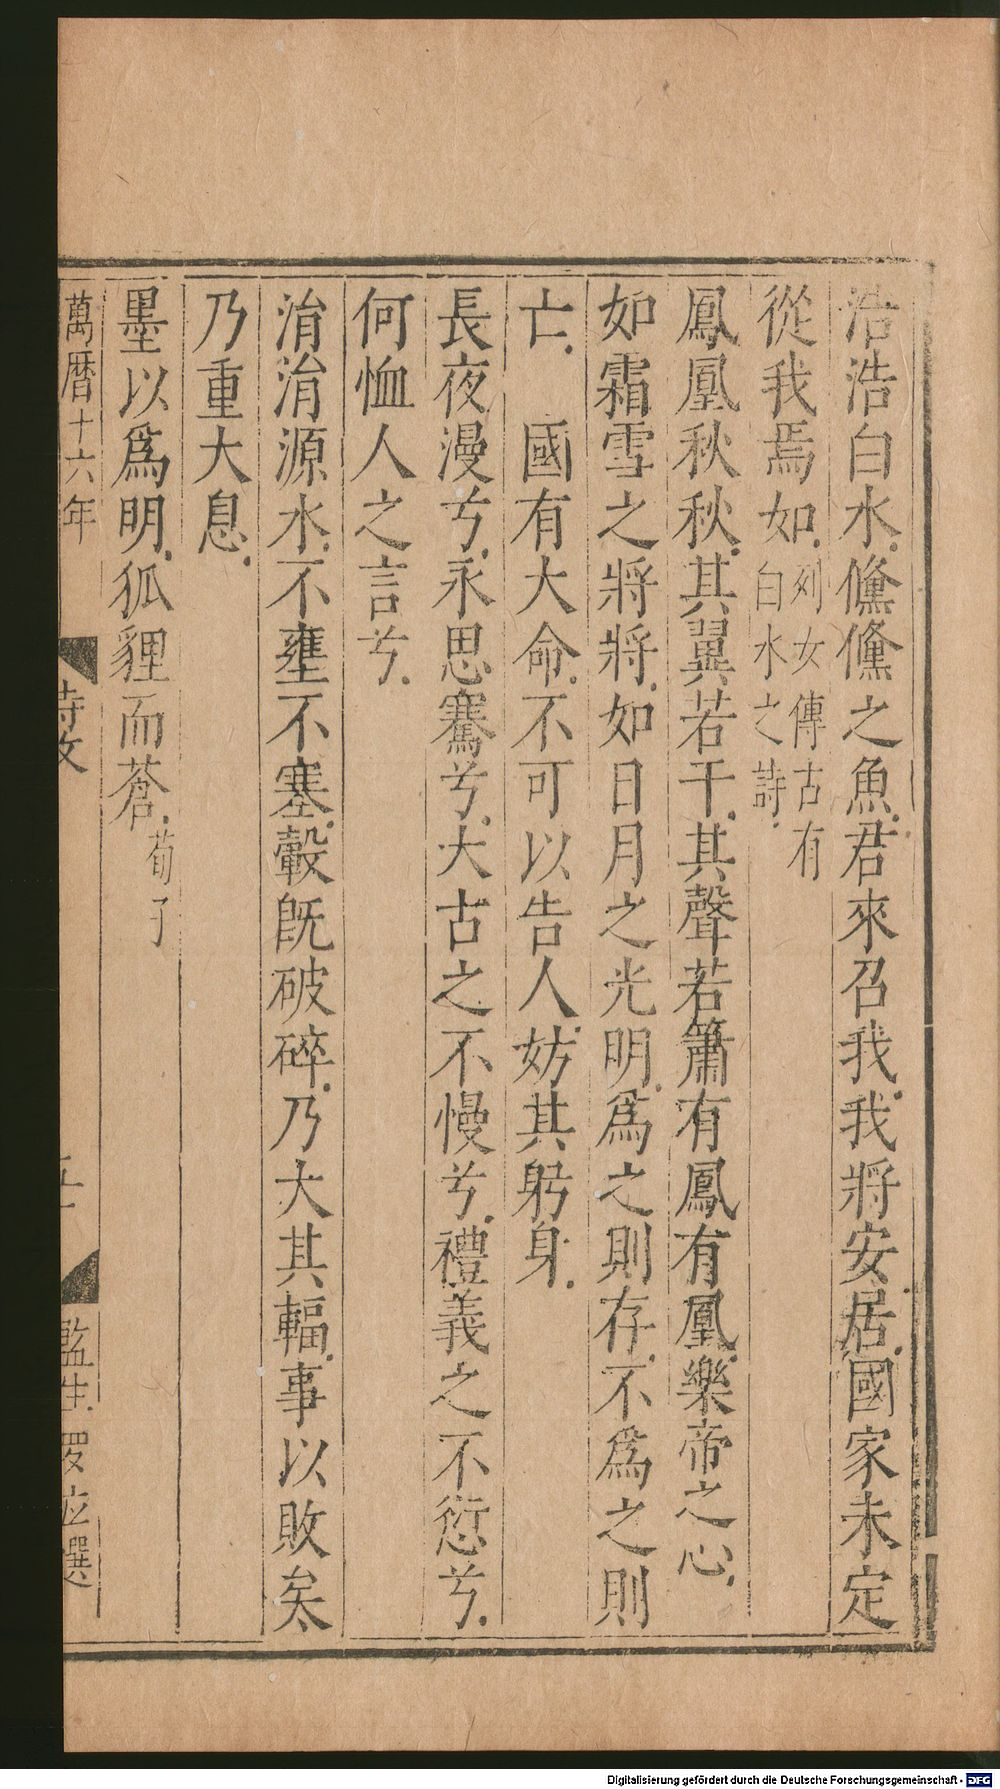 浩浩白水.儵儵之魚.君來召我.我將安居.國家未定
從我焉如.列女傳古有
白水之詩.
鳳凰秋秋.其翼若干.其聲若簫有鳳有凰.樂帝之心.
如霜雪之將將.如日月之光明.爲之則存.不爲之則
亡.　國有大命.不可以告人.妨其躬身.
長夜漫兮.永思騫兮.大古之不慢兮.禮義之不愆兮.
何恤人之言兮.
涓涓源水.不壅不塞.轂既破碎.乃大其輻.事以敗矣.
乃重大息.
墨以爲明.狐貍而蒼.荀子
萬曆十六年
監生
Digitalisierung gefördert durch die Deutsche Forschungsgemeinschaft - DFG